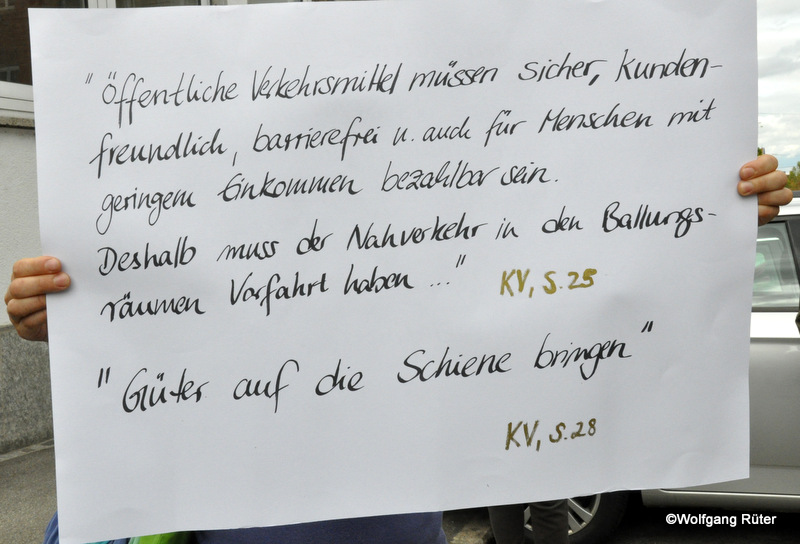 "Öffentliche Verkehrsmittel müssen sicher, kunden-
freundlich, barrierefrei u. auch für Menschen mit
geringem Einkommen bezahlbar sein.
Deshalb muss der Nahverkehr in den Ballungs-
räumen Vorfahrt haben ..." KV, S.25
"Güter auf die Schiene bringen"
KV, S.28
©Wolfgang Rüter